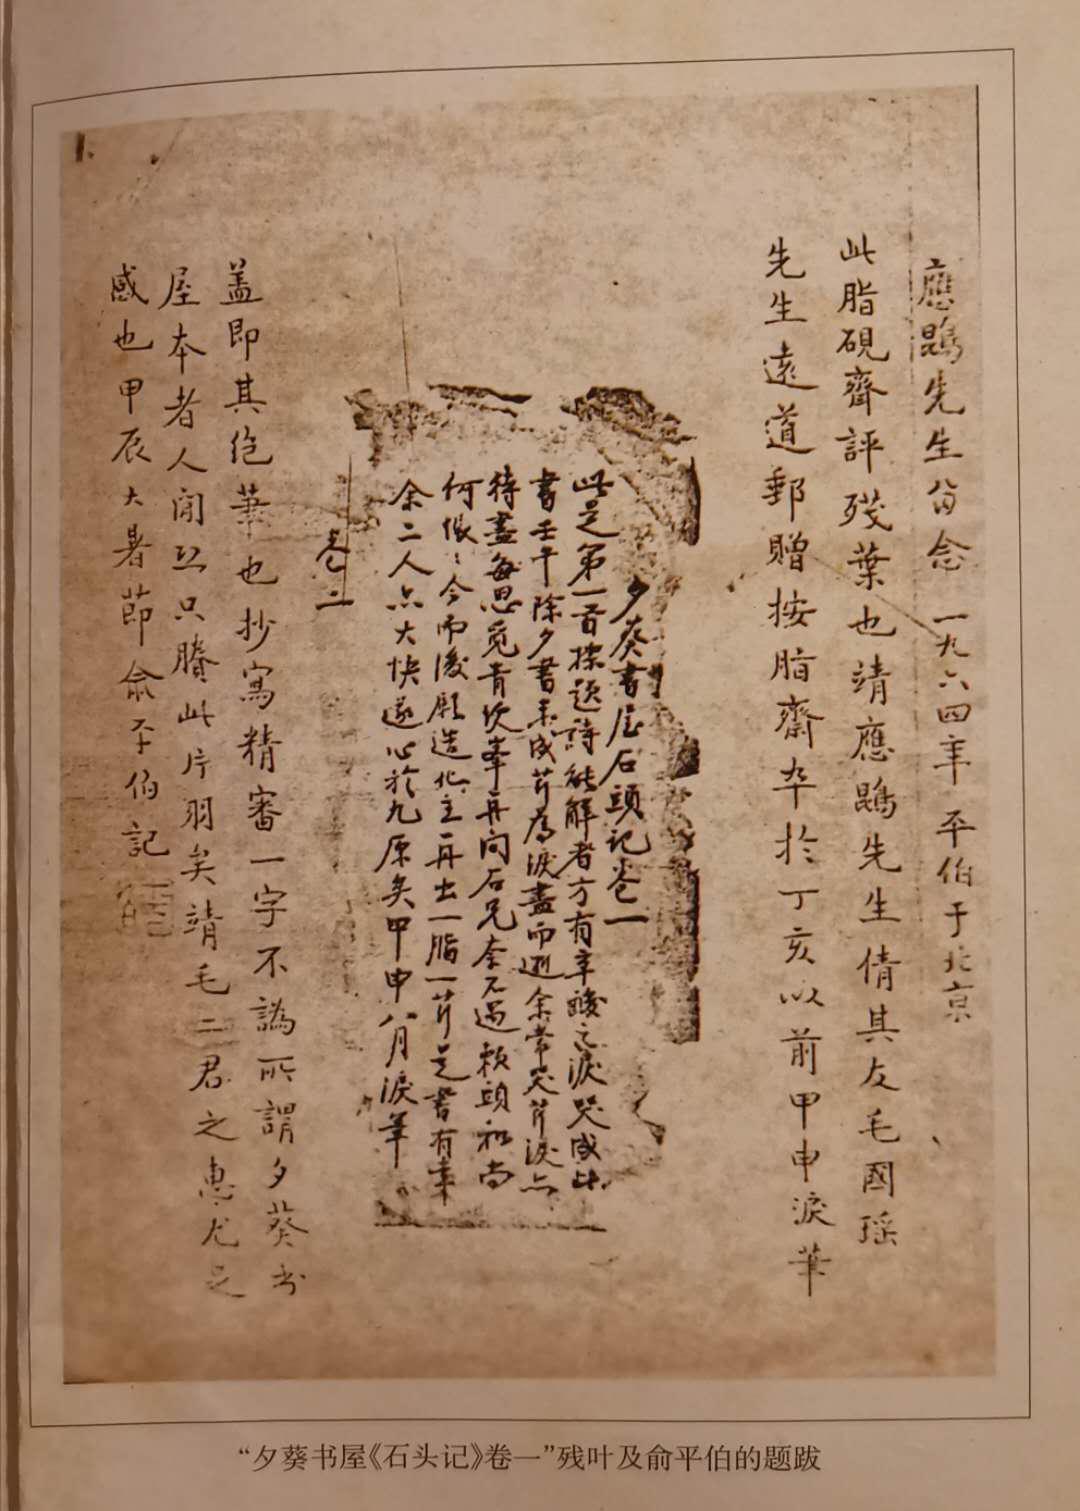 應鵾先生留念 一九六四年 平伯于北京
此脂硯齋評殘葉也靖應鵾先生倩其友毛國瑶
先生遠道郵贈按脂齋卒於丁亥以前甲申淚筆
夕葵書屋石頭記卷一
此是第一首標題詩能解者方有辛酸之淚哭成此
書壬午除夕書未成芹為淚盡而逝余常哭芹淚亦
待盡每思覓青埂峯再問石兄奈不遇賴頭和尚
何恨〻今而後願造化主再出一脂一芹是書有幸
余二人亦大快遂心於九原矣甲申八月淚筆
卷二
蓋即其絕筆也抄寫精審一字不譌所謂夕葵书
屋本者人间恐只賸此片羽矣靖毛二君之惠尤足
感也甲辰大暑節俞平伯記
“夕葵书屋《石头记》卷一”残叶及俞平伯的题跋